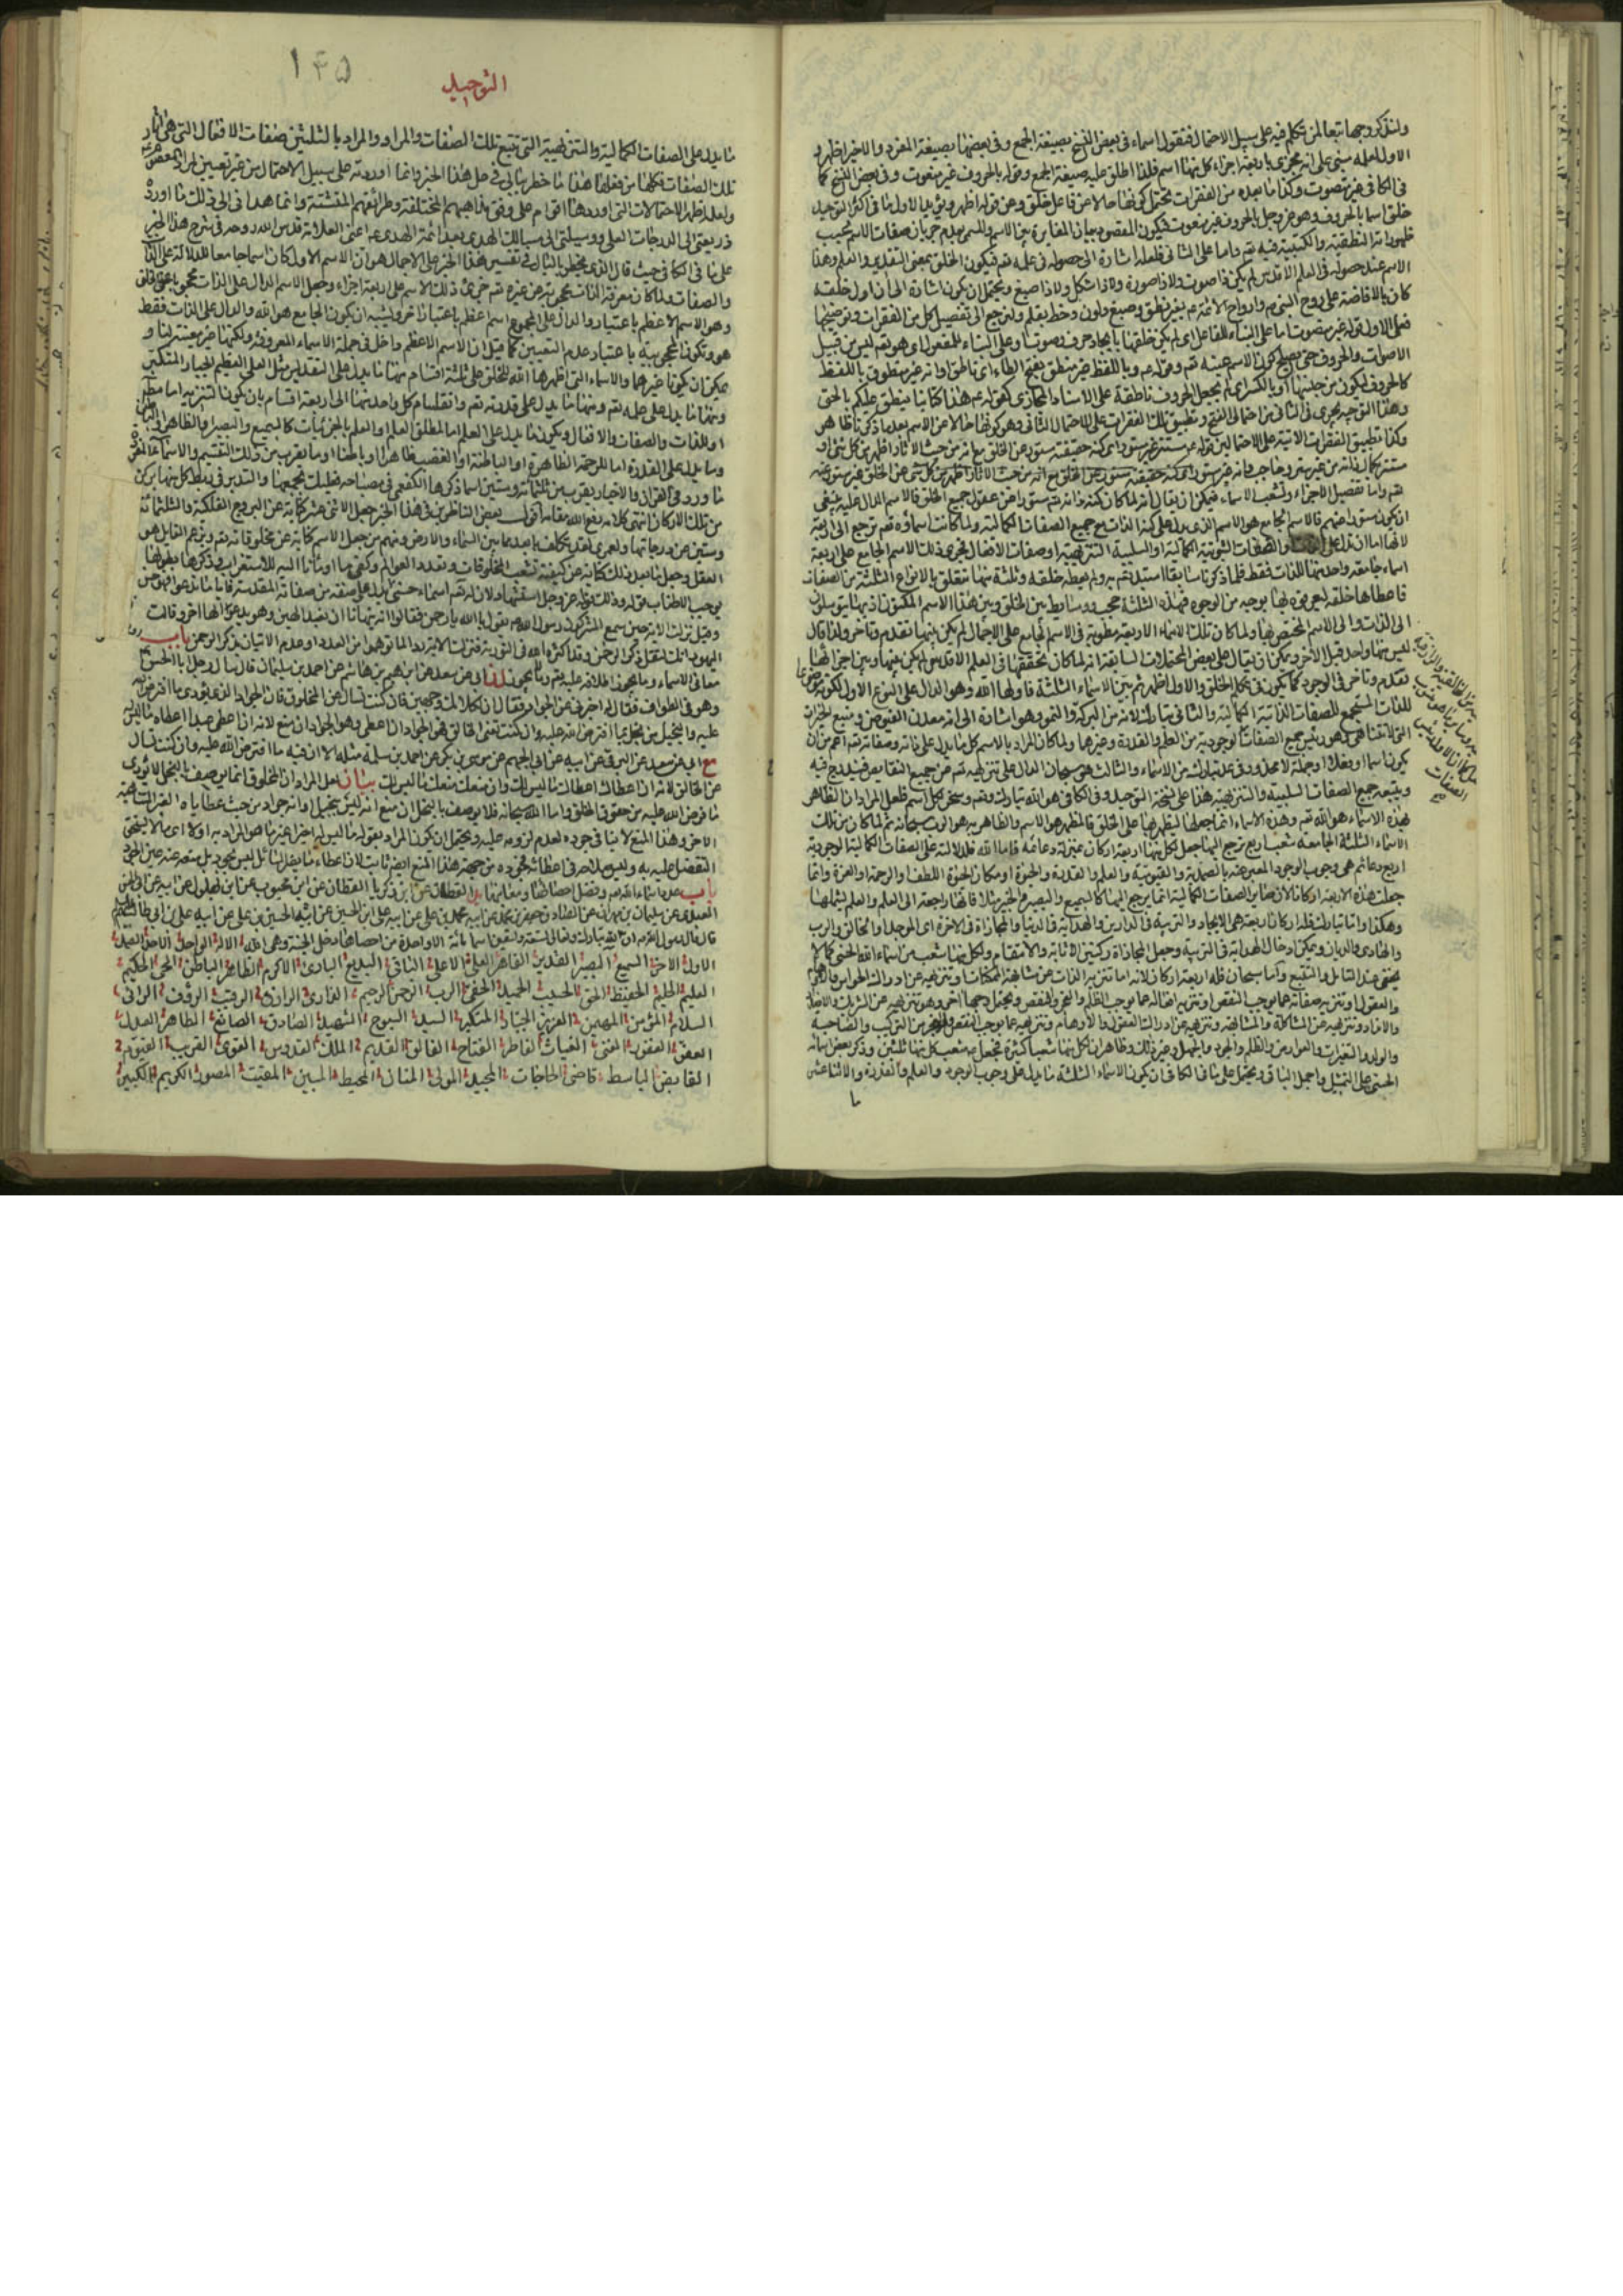 ولنذكر وجها تبعا لمن تكلم فيه على سبيل الاحتمال فنقول اسماء فى بعض النسخ بصيغة الجمع وفى بعضها بصيغة المفرد والاخير اظهر و
الاول لعله مبنى على انه مجزى باربعة اجزاء كل منها اسم فلذا اطلق عليه صيغة الجمع وقوله بالحروف غير منعوت وفى بعض النسخ كما
فى الكافى غير متصوت وكذا ما بعده من الفقرات تحتمل كونها حالا عن فاعل خلق وعن قوله اسما ويؤيد الاول ما فى اكثر التوحيد
خلق اسما بالحروف وهو عز وجل بالحروف غير منعوت فيكون المقصود بيان المغايرة بين الاسم والمسمى بعدم جريان صفات الاسم بحسب
ظهوراته النطقية والكتبية فيه تعم واما على الثانى فلعله اشارة الى حصوله فى علمه تعم فيكون الخلق بمعنى التقدير والعلم وهذا
الاسم عند حصوله فى العلم الاقدس لم يكن ذا صوت ولا ذا صورة ولا ذا شكل ولا ذا صبغ ويحتمل ان يكون اشارة الى ان اول خلقه
كان بالافاضة على روح النبى وارواح الائمة بغير نطق وصبغ ولون وخط بقلم ولنرجع الى تفصيل كل من الفقرات وتوضيحها
فعلى الاول قوله غير متصوت اما على البناء للفاعل اى لم يكن خلقها بايجاد حرف وصوت او على البناء للمفعول اى هو تعم ليس من قبيل
الاصوات والحروف حتى يصلح كون الاسم عينه تعم وقوله وباللفظ غير منطق بفتح الطاء اى ناطق او انه غير منطوق باللفظ
كالحروف ليكون من جنسها او بالكسر اى لم يجعل الحروف ناطقة على الاسناد المجازى كقوله هذا كتابنا ينطق عليكم بالحق
وهذا التوجيه يجرى فى الثانى من احتمالى الفتح وتطبيق تلك الفقرات على الاحتمال الثانى وهو كونها حالا عن الاسم بعد ما ذكرنا ظاهر
وكذا تطبيق الفقرات الاتية على الاحتمالين قوله مستتر غير مستور اى كنه حقيقته مستور عن الخلق مع انه من حيث الاثار اظهر من كل شئ او
تعم واما تفصيل الاجزاء وتشعب الاسماء فيمكن ان يقال انه لما كان كنه ذاته تعم مستورا عن عقول جميع الخلق فالاسم الدال عليه ينبغى
ان يكون مستورا عنهم فالاسم الجامع هو الاسم الذى يدل على كنه الذات مع جميع الصفات الكمالية ولما كانت اسماؤه تعم ترجع الى اربعة
لانها اما ان تدل على والصفات الثبوتية الكمالية او السلبية التنزيهية او صفات الافعال فجزى ذلك الاسم الجامع على اربعة
اسماء جامعة واحد منها للذات فقط فلما ذكرنا سابقا استبد تعم به ولم يعطه خلقه وثلثة منها تتعلق بالانواع الثلثة من الصفات
فاعطاها خلقه ليعرفوه بها بوجه من الوجوه فهذه الثلثة حجب ووسايط بين الخلق وبين هذا الاسم المكنون اذ بها يتوسلون
الى الذات والى الاسم المختص بها ولما كان تلك الاسماء الاربعة مطوية فى الاسم الجامع على الاجمال لم يكن بينها تقدم وتاخر ولذا قال
ليس منها واحد قبل الاخر ويمكن ان يقال على بعض المحتملات السابقة انه لما كان تحققها فى العلم الاقدس لم يكن بينها وبين اجزائها
تقدم وتاخر فى الوجود كما يكون فى تكلم الخلق والاول اظهر ثم بين الاسماء الثلثة فاولها الله وهو الدال على النوع الاول لكونه موضوعا
للذات المستجمع للصفات الذاتية الكمالية والثانى تبارك لانه من البركة والنمو وهو اشارة الى انه معدن الفيوض ومنبع الخيرات
التى لا تتناهى وهو رئيس جميع الصفات الوجودية من الخلق والقدرة وغيرها ولما كان المراد بالاسم كل ما يدل على ذاته وصفاته تعم اعم من ان
يكون اسما او فعلا او جملة لا محذور فى عد تبارك من الاسماء والثالث هو سبحان الدال على تنزيهه تعم عن جميع النقايص فيندرج فيه
ويتبعه جميع الصفات السلبية والتنزيهية هذا على نسخة التوحيد وفى الكافى هو الله تبارك وتعم وسخر لكل اسم فلعل المراد ان الظاهر
بهذه الاسماء هو الله تعم وهذه الاسماء انما جعلها ليظهر بها على الخلق فالمظهر هو الاسم والظاهر به هو الرب سبحانه ثم لما كان من تلك
الاسماء الثلثة الجامعة شعب اربع ترجع اليها جعل لكل منها اربعة اركان بمنزلة دعائمه فاما الله فلدلالته على الصفات الكمالية الوجودية
اربع دعائم هى وجوب الوجود المعبر عنه بالصمدية والقيومية والعلم والقدرة والحيوة او مكان الحيوة اللطف او الرحمة او العزة وانما
جعلت هذه الاربعة اركانا لان ساير الصفات الكمالية انما يرجع اليها كالسميع والبصير والخبير مثلا فانها راجعة الى العلم والعلم يشملها
وهكذا واما تبارك فله اركان اربعة هى الايجاد والتربية فى الدارين والهداية فى الدنيا والمجازاة فى الاخرة اى الموجد او الخالق والرب
والهادى والديان ويمكن ادخال الهداية فى التربية وجعل المجازاة ركنين الاثابة والانتقام ولكل منها شعب من اسماء الله الحسنى كما لا
يخفى عند التامل والتتبع واما سبحان فله اربعة اركان لانه اما تنزيه الذات عن مشابهة الممكنات او تنزيهه عن ادراك الحواس والاوهام
والعقول او تنزيه صفاته عما يوجب النقص او تنزيه افعاله عما يوجب الظلم والعجز والنقص ويحتمل وجها اخر وهو تنزيهه عن الشريك والاضداد
والانداد وتنزيهه عن المشاكلة والمشابهة وتنزيهه عن ادراك العقول والاوهام وتنزيهه عما يوجب النقص والعجز من التركيب والصاحبة
والولد والتغيرات والعوارض والظلم والجور والجهل وغير ذلك وظاهر ان لكل منها شعبا كثيرة فجعل شعب كل منها ثلثين وذكر بعض اسمائه
الحسنى على التمثيل واجمل الباقى ويحتمل على ما فى الكافى ان يكون الاسماء الثلثة ما يدل على وجوب الوجود والعلم والقدرة والاثنا عشر
ما
التوحيد
١٤٥
ما يدل على الصفات الكمالية والتنزيهية التى تتبع تلك الصفات والمراد بالثلثين صفات الافعال التى هى اثار
تلك الصفات الكمالية هذا ما خطر ببالى فى حل هذا الخبر وانما اوردته على سبيل الاحتمال من غير تعيين لمراد المعصوم
ولعله اظهر الاحتمالات التى اوردها اقوام على وفق مذاهبهم المختلفة وطرائقهم المتشتتة وانما هدانى الى ذلك ما اورده
ذريعتى الى الدرجات العلى ووسيلتى الى مسالك الهدى بعد ائمة الهدى اعنى العلامة قدس الله روحه فى شرح هذا الخبر
على ما فى الكافى حيث قال الذى يخطر بالبال فى تفسير هذا الخبر على الاجمال هو ان الاسم الاول كان اسما جامعا للدلالة على الذات
والصفات ولما كان معرفة الذات محجوبة عن غيره تعم جزى ذلك الاسم على اربعة اجزاء وجعل الاسم الدال على الذات محجوبا عن الخلق
وهو الاسم الاعظم باعتبار والدال على المجموع اسم اعظم باعتبار اخر ويشبه ان يكون الجامع هو الله والدال على الذات فقط
هو وتكون المحجوبية باعتبار عدم التعيين كما قيل ان الاسم الاعظم داخل فى جملة الاسماء المعروفة ولكنها غير معينة لنا و
يمكن ان يكون غيرها والاسماء التى اظهرها الله للخلق على ثلثة اقسام منها ما يدل على التقديس مثل العلى العظيم العزيز الجبار المتكبر
ومنها ما يدل على علمه تعم ومنها ما يدل على قدرته تعم وانقسام كل واحد منها الى اربعة اقسام بان يكون التنزيه اما مطلقا
او للذات والصفات والافعال ويكون ما يدل على العلم اما لمطلق العلم او العلم بالجزئيات كالسميع والبصير او الظاهر او الباطن
وما يدل على القدرة اما للرحمة الظاهرة او الباطنة او الغضب ظاهرا او باطنا او ما يقرب من ذلك التقسيم والاسماء المفردة على
ما ورد فى القران والاخبار يقرب من ثلثمائة وستين اسما ذكرها الكفعمى فى مصباحه فعليك بجمعها والتدبر فى ربط كل منها بركن
من تلك الاركان انتهى كلامه رفع الله مقامه اقول بعض الناظرين فى هذا الخبر جعل الاثنى عشر كناية عن البروج الفلكية والثلثمائة
وستين عن درجاتها ولعمرى لقد تكلف بابعد مما بين السماء والارض ومنهم من جعل الاسم كناية عن مخلوقاته تعم ويزعم القائل هو
العقل وجعل ما بعد ذلك كناية عن كيفية تشعب المخلوقات وتعدد العوالم وكفى ما اومأنا اليه للاستغراب وذكرها بطولها
يوجب الاطناب قوله وذلك قوله عز وجل استشهاد لان له تعم اسماء حسنى كل منها يدل على صفة من صفاته المقدسة فايا ما تدعو فهو حسن
وقيل نزلت الاية حين سمع المشركون رسول الله يقول يا الله يا رحمن فقالوا انه ينهانا ان نعبد الهين وهو يدعو الها اخر وقالت
اليهود انك لتقل ذكر الرحمن وقد اكثره الله فى التورية فنزلت الاية ردا لما توهموا من التعدد او عدم الاتيان بذكر الرحمن باب
معانى الاسماء وما يجوز اطلاقه عليه تعم وما لا يجوز لى ابى عن سعد عن ابرهيم بن هاشم عن احمد بن سليمان قال سأل رجل ابا الحسن
وهو فى الطواف فقال له اخبرنى عن الجواد فقال ان لكلامك وجهين فان كنت تسأل عن المخلوق فان الجواد الذى يؤدى ما افترض الله
عليه والبخيل من بخل بما افترض الله عليه وان كنت تعنى الخالق فهو الجواد ان اعطى وهو الجواد ان منع لانه ان اعطى عبدا اعطاه ما ليس له
مع ابى عن سعد عن البرقى عن ابيه عن ابى الجهم عن موسى بن بكر عن احمد بن سلمة مثله الا ان فيه ما افترض الله عليه وان كنت تسأل
عن الخالق لانه ان اعطاك اعطاك ما ليس لك وان منعك منعك ما ليس لك بيان لعل المراد ان المخلوق انما يوصف بالبخل لانه لا يؤدى
ما فرض الله عليه من حقوق الخلق واما الله سبحانه فلا يوصف بالبخل ان منع لانه ليس بخيلا وانه جواد من حيث عطاياه الغير المتناهية
الاخر وهذا المنع لا ينافى جوده لعدم لزومه عليه ويحتمل ان يكون المراد بقوله ما ليس له اخيرا غير ما هو المراد به اولا اى ما لا يستحق
التفضل عليه به وليس صلاحه فى اعطائه فجوده من جهة هذا المنع ايضا ثابت لان اعطاء ما يضر السائل ليس بجود بل منعه عنه عين الجود
باب عدد اسماء الله تعم وفضل احصائها ومعانيها يد القطان عن ابن زكريا القطان عن ابن حبيب عن ابن بهلول عن ابيه عن ابى الحسن
العبدى عن سليمان بن مهران عن الصادق جعفر بن محمد عن ابيه محمد بن على عن ابيه على بن الحسين عن ابيه الحسين بن على عن ابيه على بن ابى طالب
قال قال رسول الله ان لله تبارك وتعالى تسعة وتسعين اسما مائة الا واحدة من احصاها دخل الجنة وهى الله الاله الواحد الاحد الصمد
الاول الاخر السميع البصير القدير القاهر العلى الاعلى الباقى البديع البارئ الاكرم الظاهر الباطن الحى الحكيم
العليم الحليم الحفيظ الحق الحسيب الحميد الحفى الرب الرحمن الرحيم الذارئ الرازق الرقيب الرؤف الرائى
السلام المؤمن المهيمن العزيز الجبار المتكبر السيد السبوح الشهيد الصادق الصانع الطاهر العدل
العفو الغفور الغنى الغياث الفاطر الفرد الفتاح الفالق القديم الملك القدوس القوى القريب القيوم
القابض الباسط قاضى الحاجات المجيد المولى المنان المحيط المبين المقيت المصور الكريم الكبير